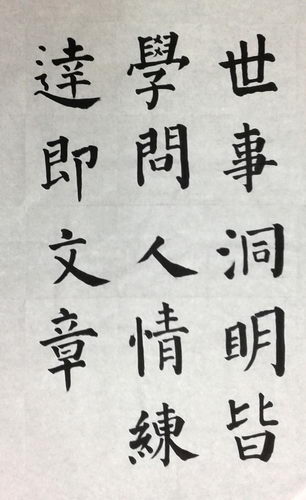 世事洞明皆
學問人情練
達即文章